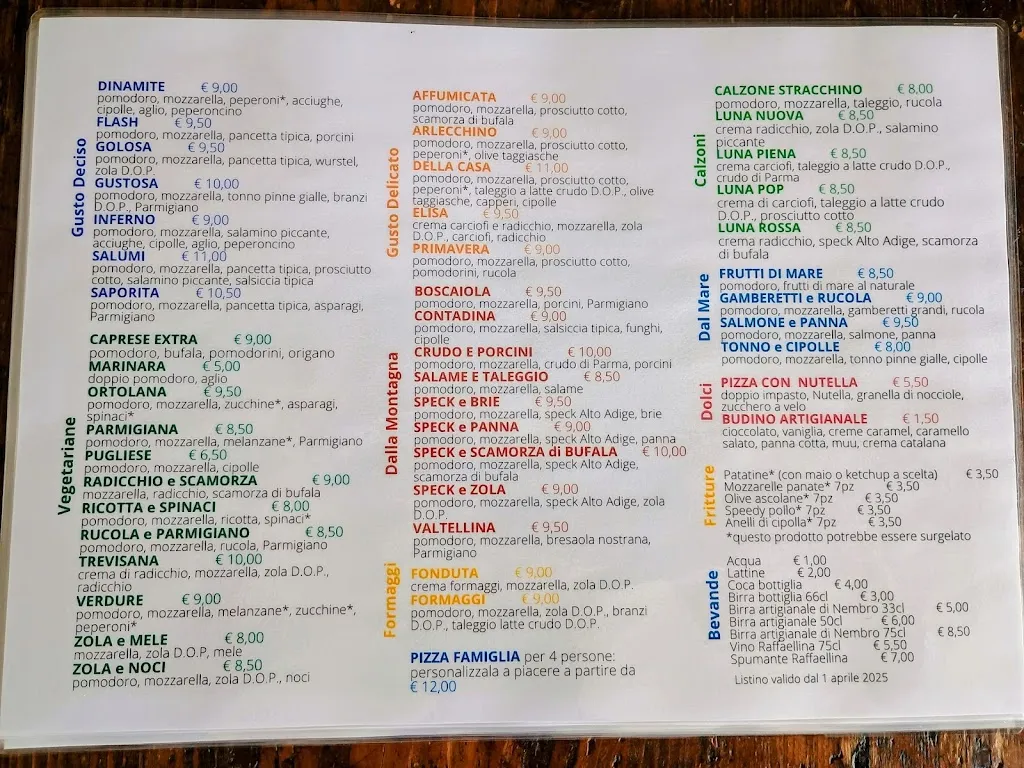 Gusto Deciso
DINAMITE € 9,00
pomodoro, mozzarella, peperoni*, acciughe,
cipolle, aglio, peperoncino
FLASH € 9,50
pomodoro, mozzarella, pancetta tipica, porcini
GOLOSA € 9,50
pomodoro, mozzarella, pancetta tipica, wurstel,
zola D.O.P.
GUSTOSA € 10,00
pomodoro, mozzarella, tonno pinne gialle, branzi
D.O.P., Parmigiano
INFERNO € 9,00
pomodoro, mozzarella, salamino piccante,
acciughe, cipolle, aglio, peperoncino
SALUMI € 11,00
pomodoro, mozzarella, pancetta tipica, prosciutto
cotto, salamino piccante, salsiccia tipica
SAPORITA € 10,50
pomodoro, mozzarella, pancetta tipica, asparagi,
Parmigiano
Vegetariane
CAPRESE EXTRA € 9,00
pomodoro, bufala, pomodorini, origano
MARINARA € 5,00
doppio pomodoro, aglio
ORTOLANA € 9,50
pomodoro, mozzarella, zucchine*, asparagi,
spinaci*
PARMIGIANA € 8,50
pomodoro, mozzarella, melanzane*, Parmigiano
PUGLIESE € 6,50
pomodoro, mozzarella, cipolle
RADICCHIO e SCAMORZA € 9,00
mozzarella, radicchio, scamorza di bufala
RICOTTA e SPINACI € 8,00
pomodoro, mozzarella, ricotta, spinaci*
RUCOLA e PARMIGIANO € 8,50
pomodoro, mozzarella, rucola, Parmigiano
TREVISANA € 10,00
crema di radicchio, mozzarella, zola D.O.P.,
radicchio
VERDURE € 9,00
pomodoro, mozzarella, melanzane*, zucchine*,
peperoni*
ZOLA e MELE € 8,00
mozzarella, zola D.O.P, mele
ZOLA e NOCI € 8,50
pomodoro, mozzarella, zola D.O.P., noci
Gusto Delicato
AFFUMICATA € 9,00
pomodoro, mozzarella, prosciutto cotto,
scamorza di bufala
ARLECCHINO € 9,00
pomodoro, mozzarella, prosciutto cotto,
peperoni*, olive taggiasche
DELLA CASA € 11,00
pomodoro, mozzarella, prosciutto cotto,
peperoni*, taleggio a latte crudo D.O.P., olive
taggiasche, capperi, cipolle
ELISA € 9,50
crema carciofi e radicchio, mozzarella, zola
D.O.P., carciofi, radicchio
PRIMAVERA € 9,00
pomodoro, mozzarella, prosciutto cotto,
pomodorini, rucola
Dalla Montagna
BOSCAIOLA € 9,50
pomodoro, mozzarella, porcini, Parmigiano
CONTADINA € 9,00
pomodoro, mozzarella, salsiccia tipica, funghi,
cipolle
CRUDO E PORCINI € 10,00
pomodoro, mozzarella, crudo di Parma, porcini
SALAME E TALEGGIO € 8,50
pomodoro, mozzarella, salame
SPECK e BRIE € 9,50
pomodoro, mozzarella, speck Alto Adige, brie
SPECK e PANNA € 9,00
pomodoro, mozzarella, speck Alto Adige, panna
SPECK e SCAMORZA di BUFALA € 10,00
pomodoro, mozzarella, speck Alto Adige,
scamorza di bufala
SPECK e ZOLA € 9,00
pomodoro, mozzarella, speck Alto Adige, zola
D.O.P.
VALTELLINA € 9,50
pomodoro, mozzarella, bresaola nostrana,
Parmigiano
Formaggi
FONDUTA € 9,00
crema formaggi, mozzarella, zola D.O.P.
FORMAGGI € 9,00
pomodoro, mozzarella, zola D.O.P., branzi
D.O.P., taleggio latte crudo D.O.P.
PIZZA FAMIGLIA per 4 persone:
personalizzala a piacere a partire da
€ 12,00
Calzoni
CALZONE STRACCHINO € 8,00
pomodoro, mozzarella, taleggio, rucola
LUNA NUOVA € 8,50
crema radicchio, zola D.O.P., salamino
piccante
LUNA PIENA € 8,50
crema carciofi, taleggio a latte crudo D.O.P.,
crudo di Parma
LUNA POP € 8,50
crema di carciofi, taleggio a latte crudo
D.O.P., prosciutto cotto
LUNA ROSSA € 8,50
crema radicchio, speck Alto Adige, scamorza
di bufala
Dal Mare
FRUTTI DI MARE € 8,50
pomodoro, frutti di mare al naturale
GAMBERETTI e RUCOLA € 9,00
pomodoro, mozzarella, gamberetti grandi, rucola
SALMONE e PANNA € 9,50
pomodoro, mozzarella, salmone, panna
TONNO e CIPOLLE € 8,00
pomodoro, mozzarella, tonno pinne gialle, cipolle
Dolci
PIZZA CON NUTELLA € 5,50
doppio impasto, Nutella, granella di nocciole,
zucchero a velo
BUDINO ARTIGIANALE € 1,50
cioccolato, vaniglia, creme caramel, caramello
salato, panna cotta, muu, crema catalana
Fritture
Patatine* (con maio o ketchup a scelta) € 3,50
Mozzarelle panate* 7pz € 3,50
Olive ascolane* 7pz € 3,50
Speedy pollo* 7pz € 3,50
Anelli di cipolla* 7pz € 3,50
*questo prodotto potrebbe essere surgelato
Bevande
Acqua € 1,00
Lattine € 2,00
Coca bottiglia € 4,00
Birra bottiglia 66cl € 3,00
Birra artigianale di Nembro 33cl € 5,00
Birra artigianale 50cl € 6,00
Birra artigianale di Nembro 75cl € 8,50
Vino Raffaellina 75cl € 5,50
Spumante Raffaellina € 7,00
Listino valido dal 1 aprile 2025